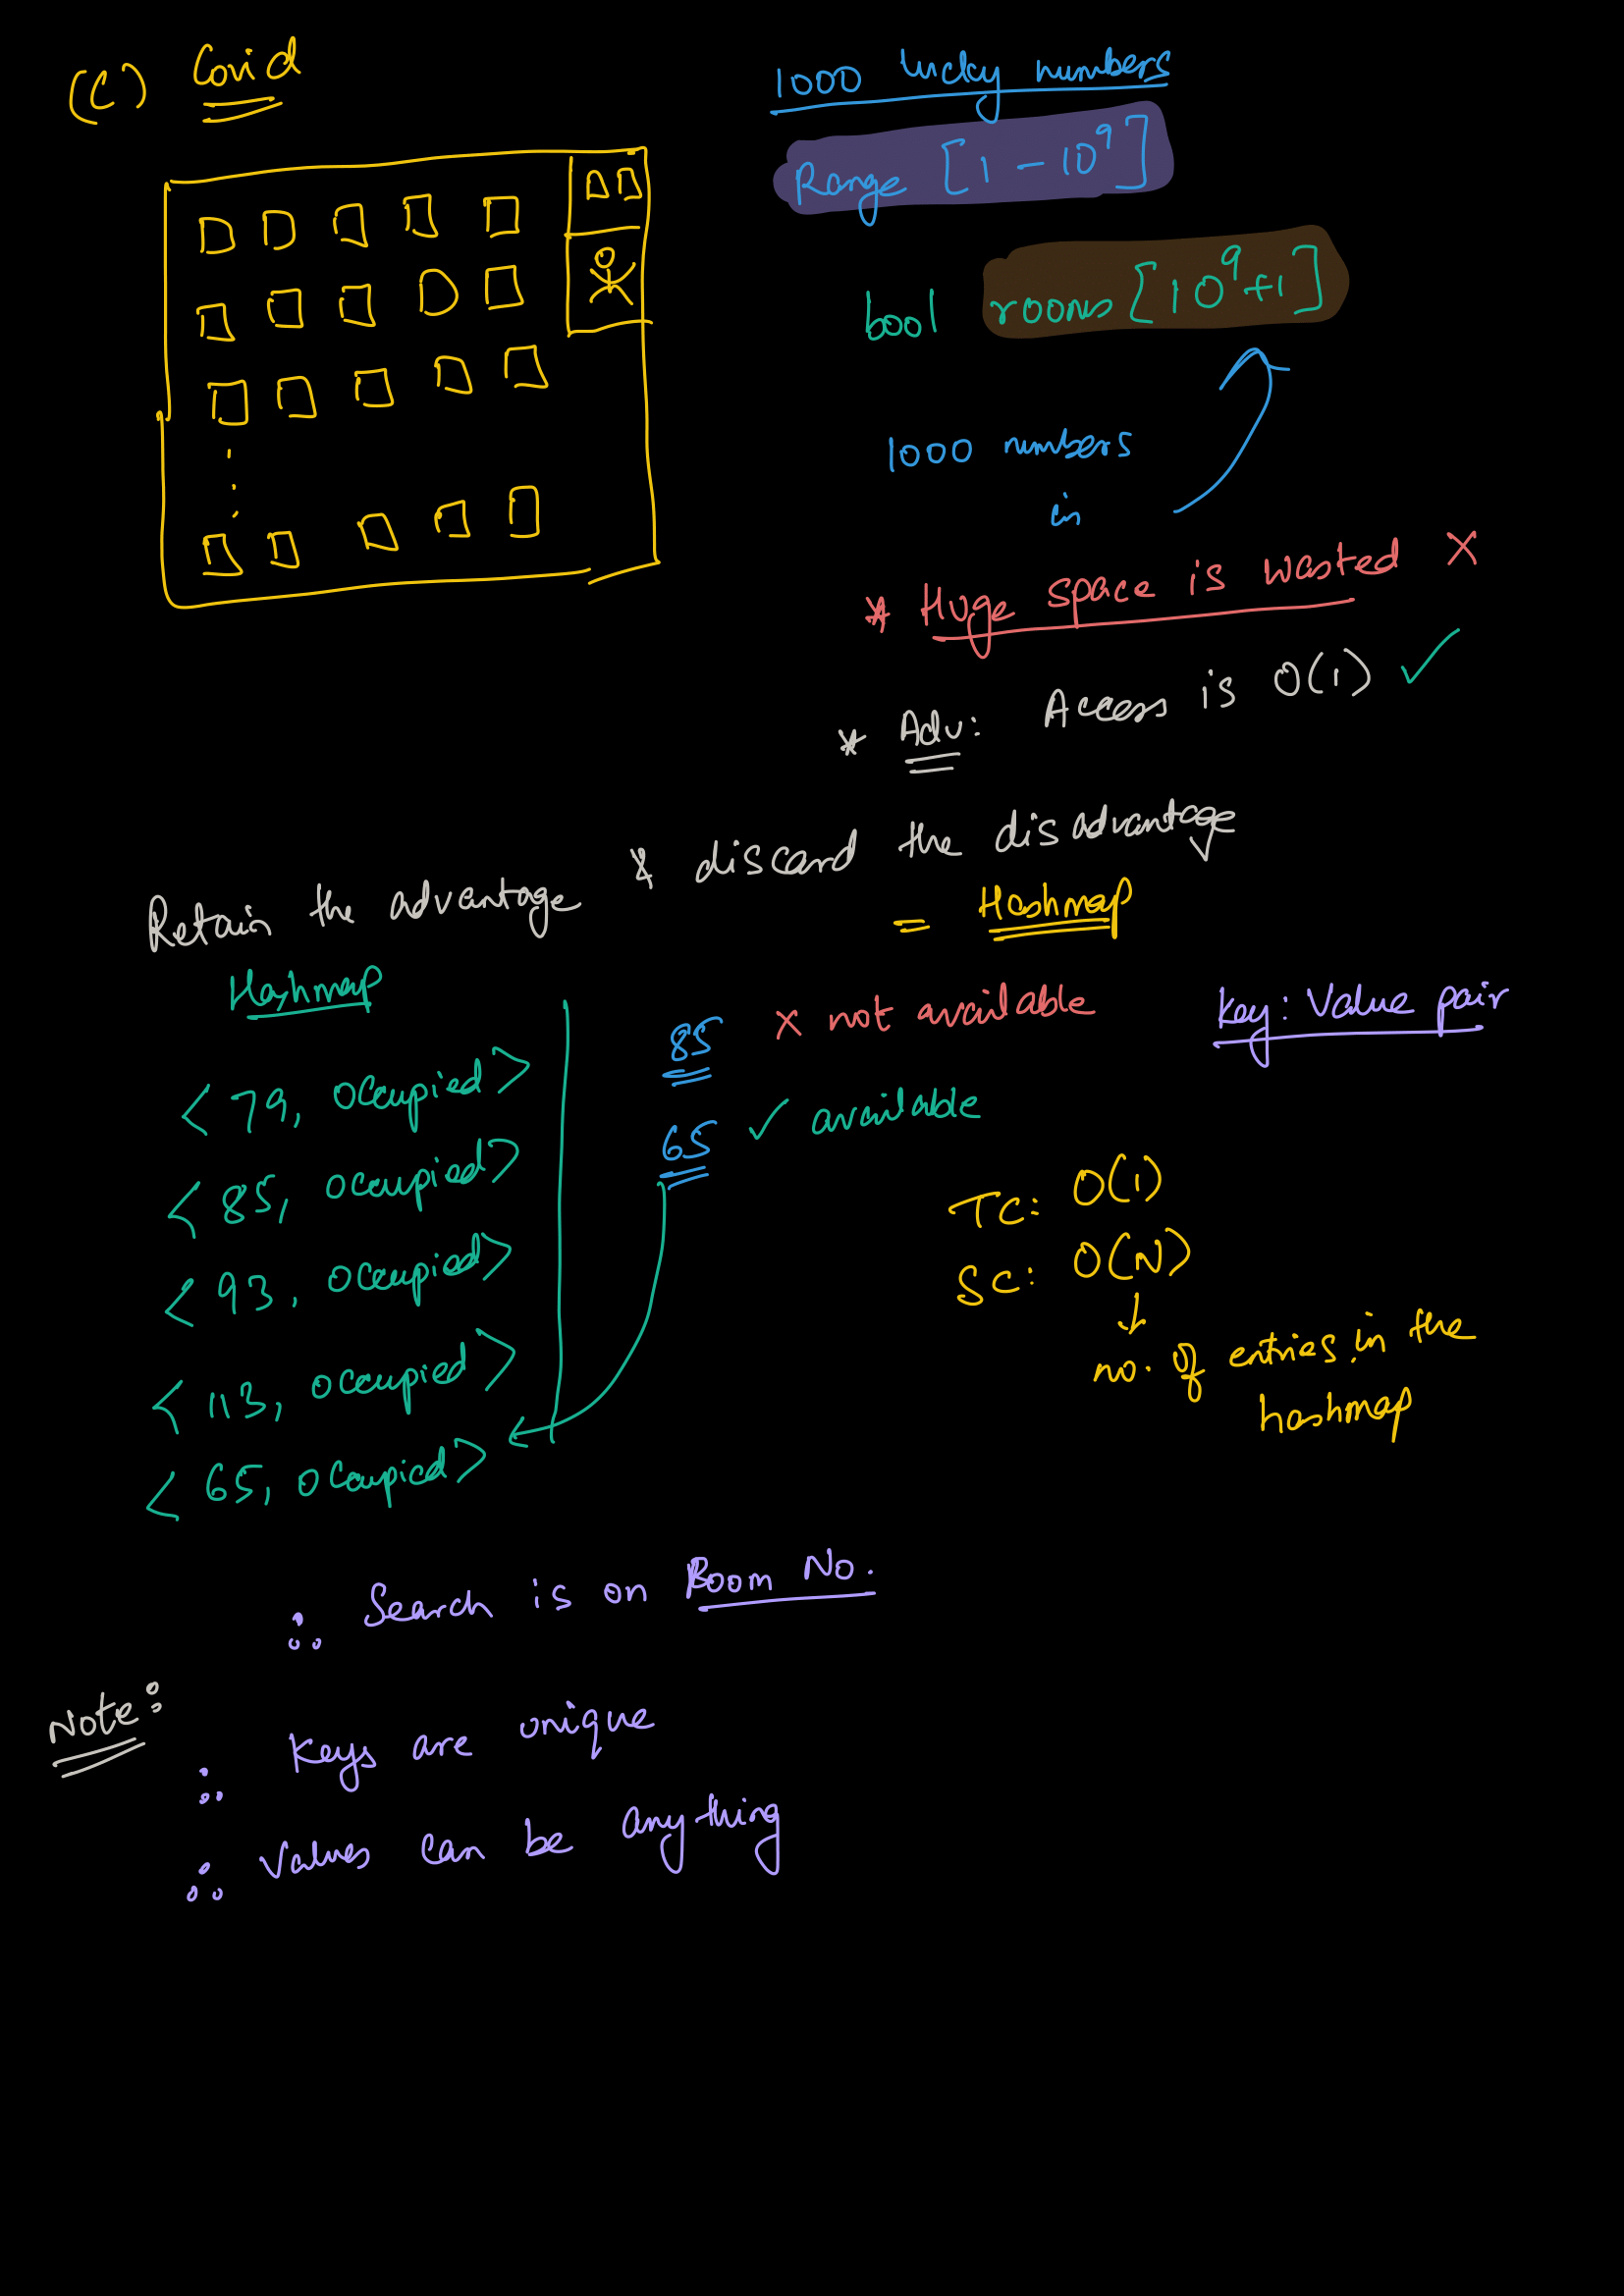 (C) Covid
1000 lucky numbers
Range [1 - 10⁹]
bool rooms [10⁹+1]
1000 numbers
in
* Huge space is wasted X
* Adv: Access is O(1) ✓
Retain the advantage & discard the disadvantage
= Hashmap
Hashmap
< 79, occupied >
< 85, occupied >
< 93, occupied >
< 113, occupied >
< 65, occupied >
85 X not available
65 ✓ available
Key: Value pair
TC: O(1)
SC: O(N)
↓
no. of entries in the
hashmap
∴ Search is on Room No.
Note:
∴ Keys are unique
∴ Values can be anything